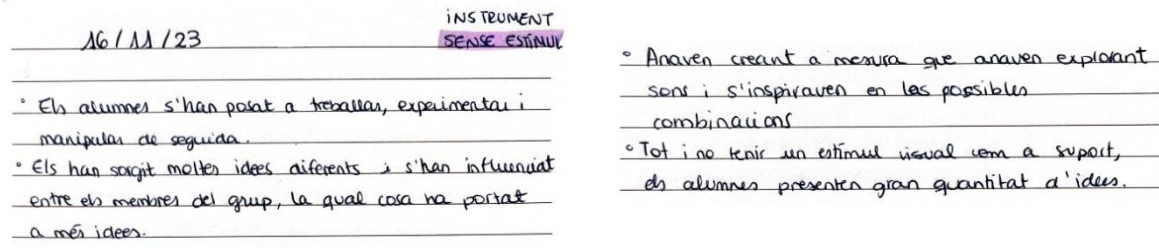 16/11/23
INSTRUMENT
SENSE ESTÍMUL
° Els alumnes s'han posat a treballar, experimentar i
manipular de seguida.
° Els han sorgit moltes idees diferents i s'han influenciat
entre els membres del grup, la qual cosa ha portat
a més idees.
° Anaven creant a mesura que anaven explorant
sons i s'inspiraven en les possibles
combinacions
° Tot i no tenir un estímul visual com a suport,
els alumnes presenten gran quantitat d'idees.